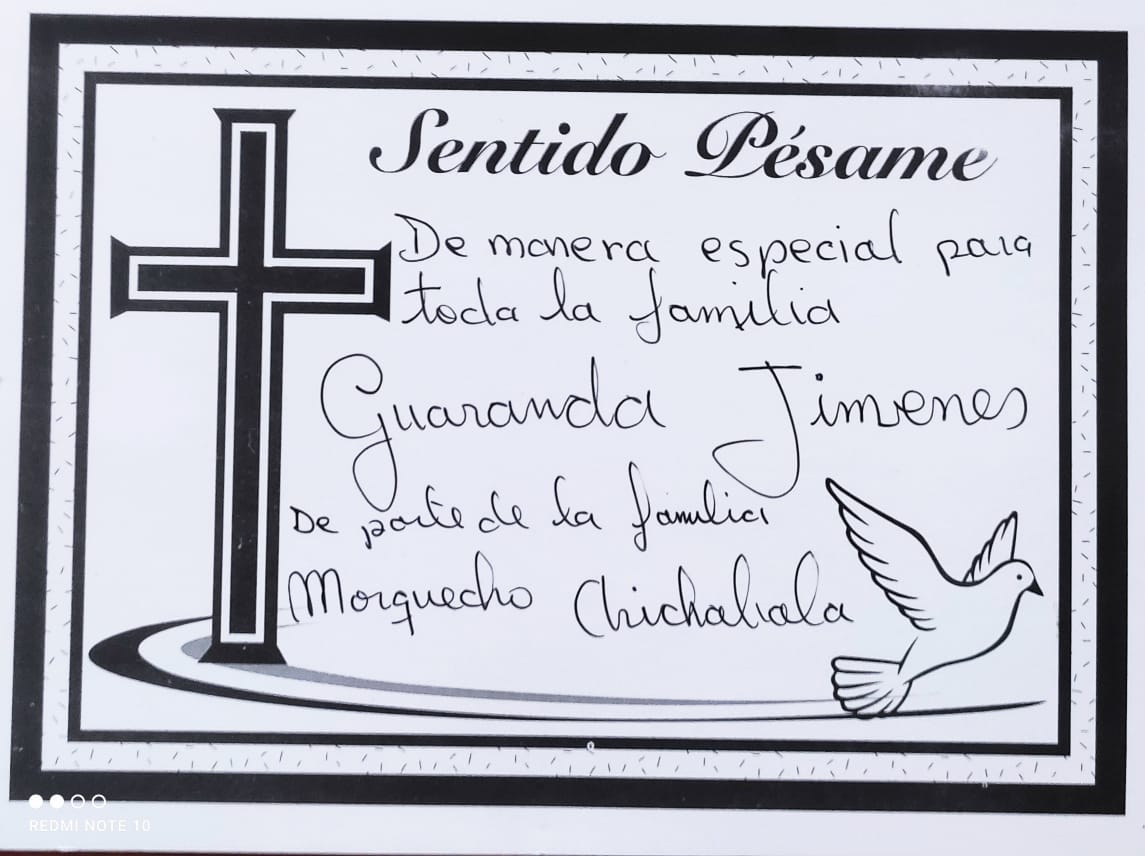 Sentido Pésame
De manera especial para
toda la familia
Guaranda Jimenes
De parte de la familia
Morquecho Chichahala
REDMI NOTE 10